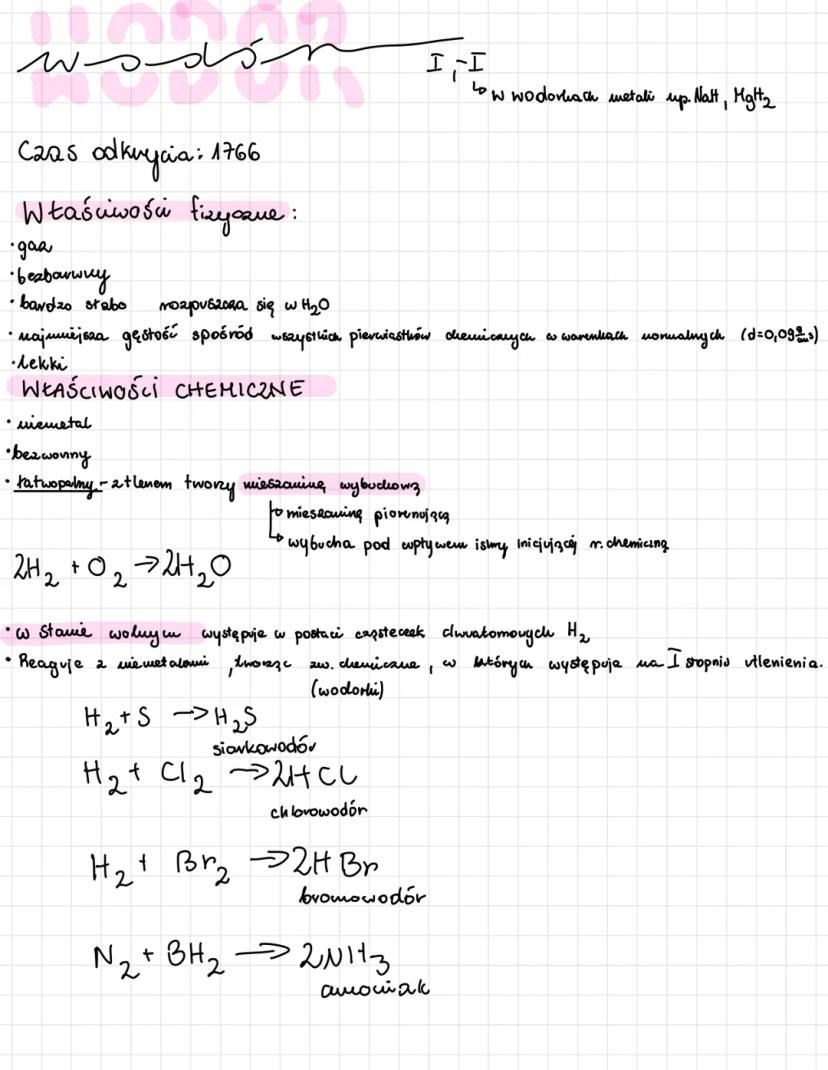 WODÓR
wodór I, -I
↳ w wodorkach metali np. NaH, MgH₂
Czas odkrycia: 1766
Właściwości fizyczne:
·gaz
·bezbarwny
·bardzo słabo rozpuszcza się w H₂O
·najmniejsza gęstość spośród wszystkich pierwiastków chemicznych w warunkach normalnych (d=0,09 g/dm³)
·lekki
WŁAŚCIWOŚCI CHEMICZNE
·niemetal
·bezwonny
·łatwopalny - z tlenem tworzy mieszaninę wybuchową
↳ mieszaninę piorunującą
↳ wybucha pod wpływem iskry inicjującej r. chemiczną
2H₂ + O₂ → 2H₂O
·w stanie wolnym występuje w postaci cząsteczek dwuatomowych H₂
·Reaguje z niemetalami, tworząc zw. chemiczne, w których występuje na I stopniu utlenienia.
(wodorki)
H₂ + S → H₂S
siarkowodór
H₂ + Cl₂ → 2HCl
chlorowodór
H₂ + Br₂ → 2HBr
bromowodór
N₂ + 3H₂ → 2NH₃
amoniak